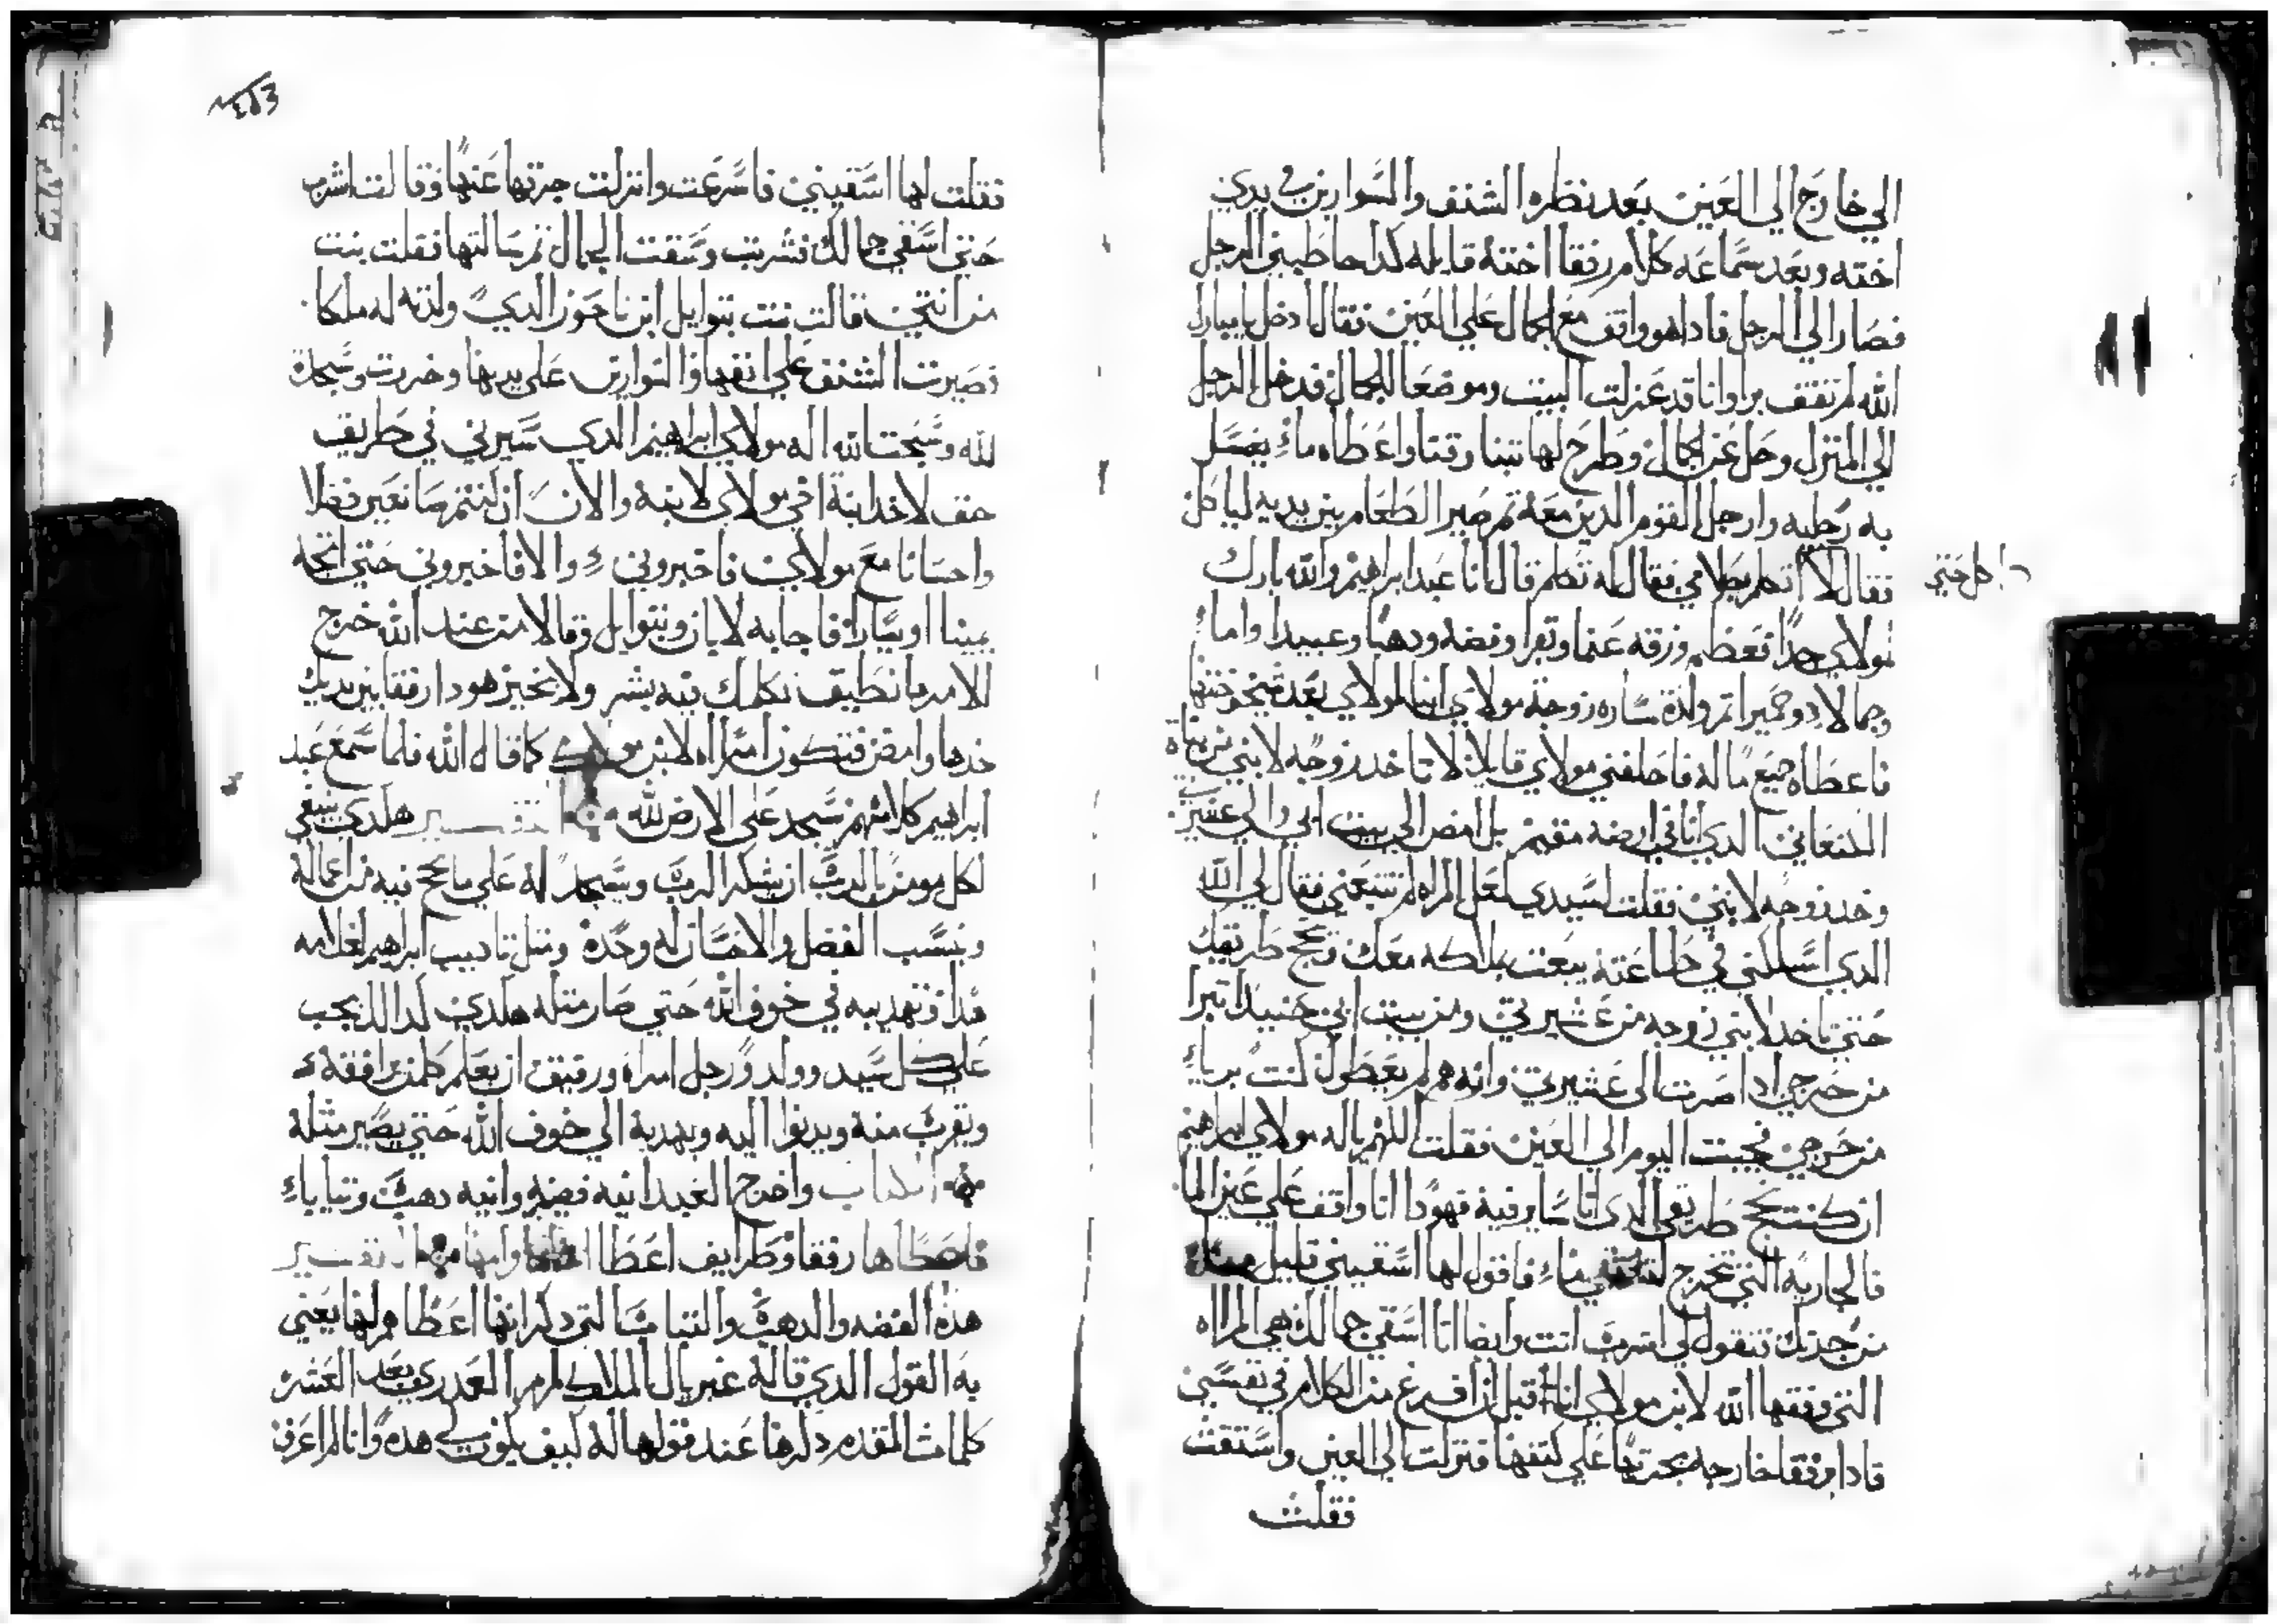 الي خارج الي العين بعد نظره الشنف والسوارين في يدي
اخته وبعد سماعه كلام رفقا اخته قايله كدا خاطبني الرجل
فصار الي الرجل فاداهو واقف مع الجمال علي العين فقال ادخل يا مبارك
الله لم تقف برا وانا قد عزلت البيت وموضعا للجمال فدخل الرجل
الي المنزل وحل عن الجمال وطرح لها تبنا وقتا واعطاه ماء يغسل
به رجليه وارجل القوم الدين معه تم صير الطعام بين يديه لياكل
فقال لا اكل حتي اتكلم بكلامي فقال له تكلم قال انا عبد ابراهيم والله بارك
مولاي جدا فعظم ورزقه غنما وبقرا وفضه ودهبا وعبيدا واماء
وجمالا وحميرا تم ولدة ساره زوجة مولاي ابنا لمولاي بعد شيخوختها
فاعطاه جميع ما له فاحلفني مولاي قايلا لا تاخد زوجه لابني من بنات
الكنعاني الدي انا في ارضه مقيم بل امض الي بيت ابي والي عشيرتي
وخد زوجه لابني فقلت لسيدي لعل المراه لم تتبعني فقال لي الله
الدي اسلكني في طاعته يبعت ملاكه معك وينجح طريقك
حتي تاخد لابني زوجه من عشيرتي ومن بيت ابي حنيد تبرا
من حرجي ادا صرت الي عشيرتي وانهم لم يعطوك كنت بريا
من حرجي فجيت اليوم الي العين فقلت اللهم يا اله مولاي ابراهيم
ان كنت تنجح طريقي الدي انا ساير فيه فهودا انا واقف علي عين الماء
فالجاريه التي تخرج لتستقي ماء فاقول لها اسقيني قليل ماء
من جرتك فتقول لي اشرب انت وايضا انا اسقي جمالك هي المراه
التي وفقها الله لابن مولاي انا قبل ان افرغ من الكلام في نفسي
فادا رفقا خارجه بجرتها علي كتفها فنزلت الي العين واستقت
فقلت
فقلت لها اسقيني فاسرعت وانزلت جرتها عنها وقالت اشرب
حتي اسقي جمالك فشربت وسقت الجمال تم سالتها فقلت بنت
من انتي فقالت بنت بتوايل ابن ناحور الدي ولدته له ملكا
فصيرت الشنف علي انفها والسوارين علي يديها وخررت وسجدة
لله وسبحت الله اله مولاي ابراهيم الدي سيرني في طريق
حق لاخد ابنة اخي مولاي لابنه والان ان كنتم صانعين فضلا
واحسانا مع مولاي فاخبروني والا فاخبروني حتي اتجه
يمينا او يسارا فاجابه لابان وبتوايل وقالا من عند الله خرج
الامر ما نطيق نكلمك فيه بشر ولا بخير هودا رفقا بين يديك
خدها وامض فتكون امراه لابن مولاك كما قال الله فلما سمع عبد
ابراهيم كلامهم سجد علي الارض لله التفسير هكدي ينبغي
لكل مومن بالرب ان يشكر الرب ويسجد له علي ما نجح فيه من اعماله
وينسب الفضل والاحسان له وحده ومتل تاديب ابراهيم لغلامه
هدا وتهديبه في خوف الله حتي صار متله هكدي كدالك يجب
علي كل سيد ووالد ورجل امراه ورفيق ان يعلم كلمن يرافقه
ويقرب منه ويدنوا اليه ويهديه الي خوف الله حتي يصير متله
الكتاب واخرج العبد انيه فضه وانيه دهب وتياب
فاعطاها رفقا وطرايف اعطا اخاها وامها التفسير
هده الفضه والدهب والتياب التي دكر انها اعطاهم لها يعني
به القول الدي قاله غبريال الملاك لمريم العدري بعد العشر
كلمات المقدم دكرها عند قولها له كيف يكون لي هده وانا لم اعرف